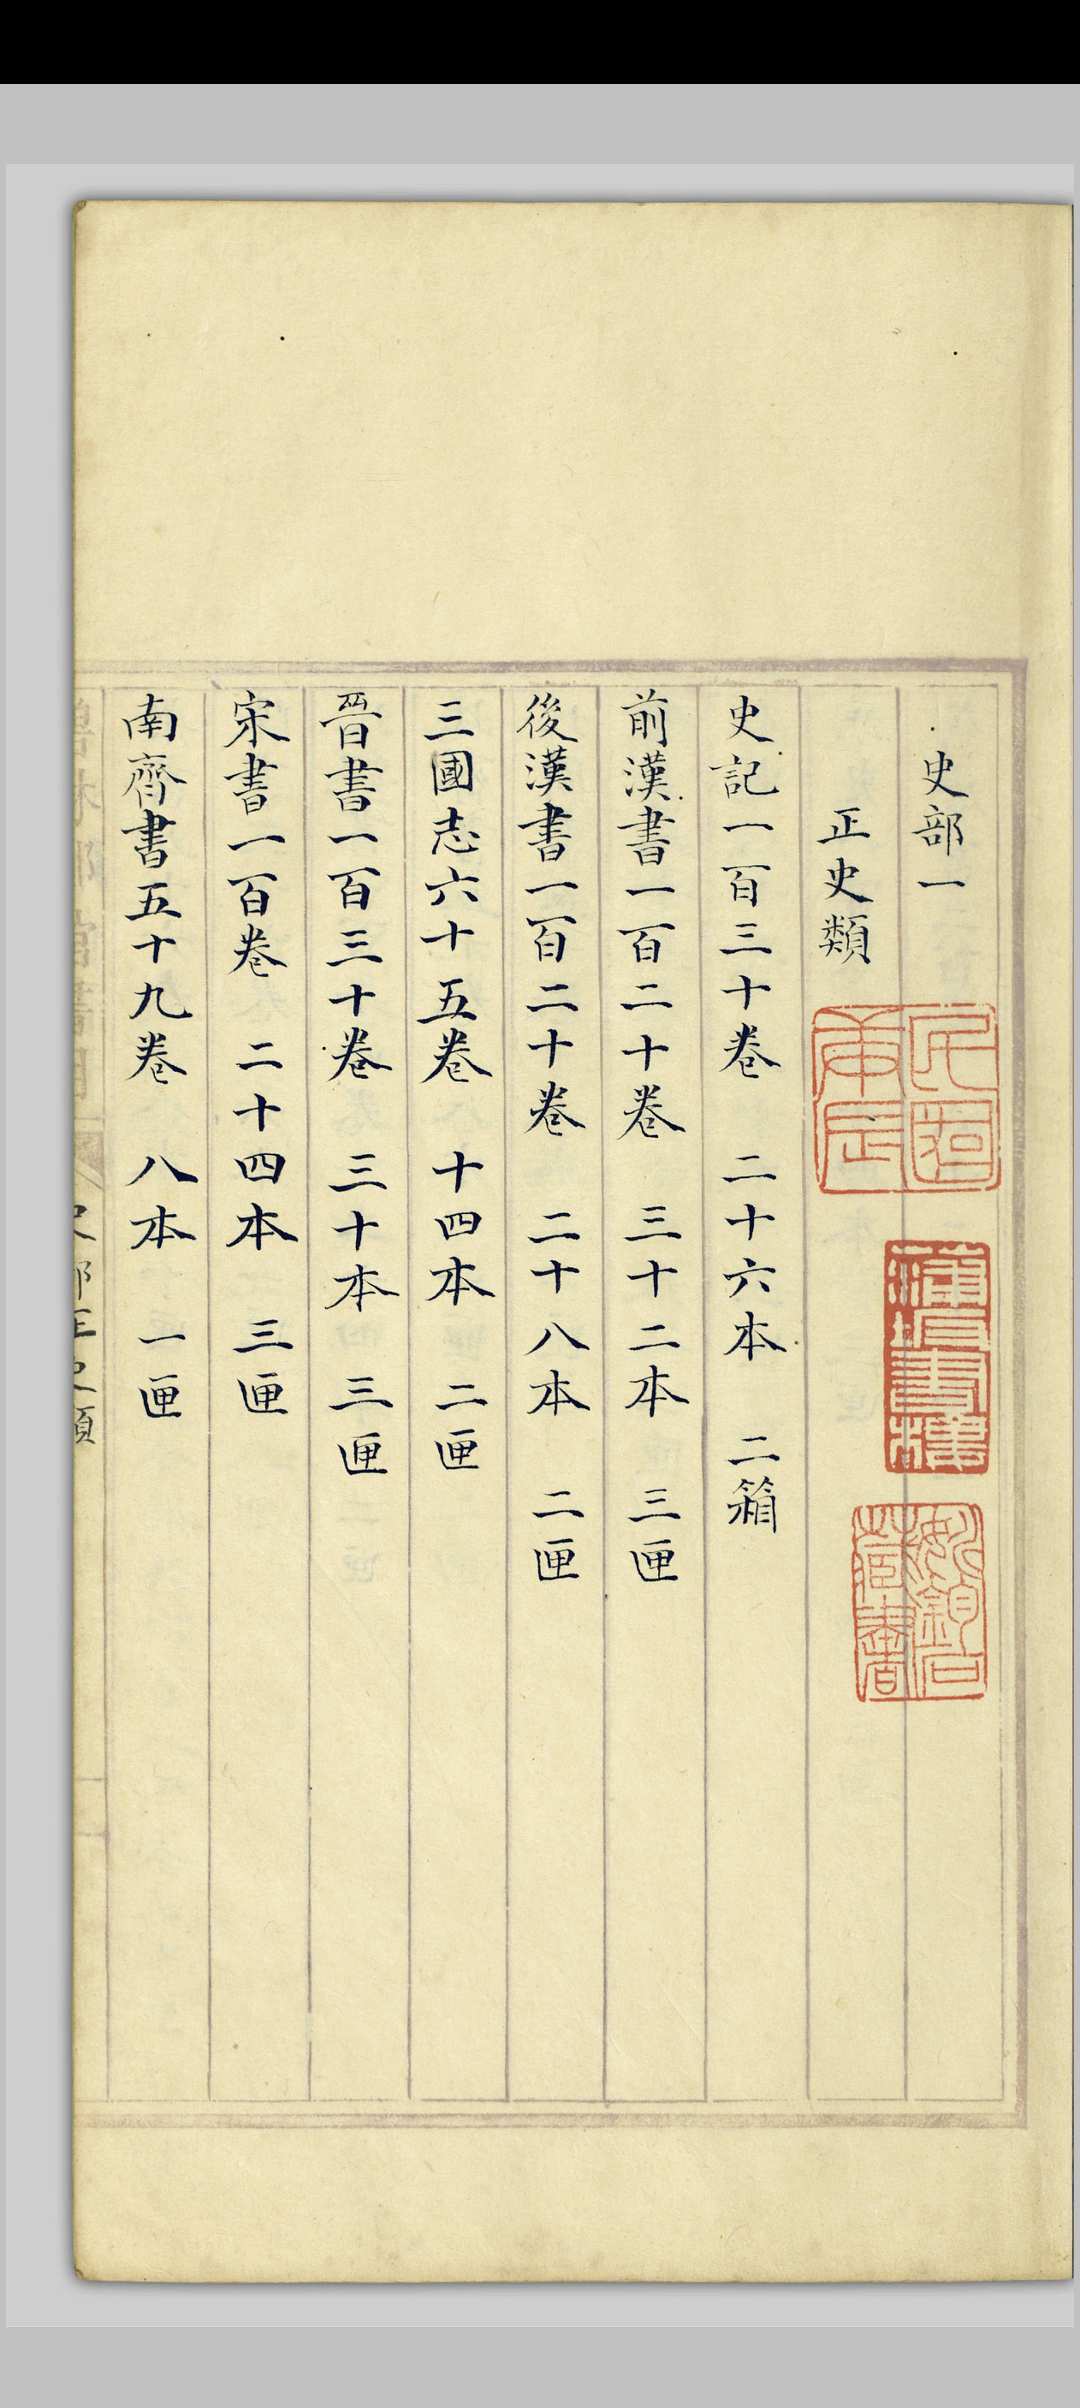 史部一
正史類
史記一百三十卷 二十六本 二箱
前漢書一百二十卷 三十二本 三匣
後漢書一百二十卷 二十八本 二匣
三國志六十五卷 十四本 二匣
晉書一百三十卷 三十本 三匣
宋書一百卷 二十四本 三匣
南齊書五十九卷 八本 一匣
史部正史類